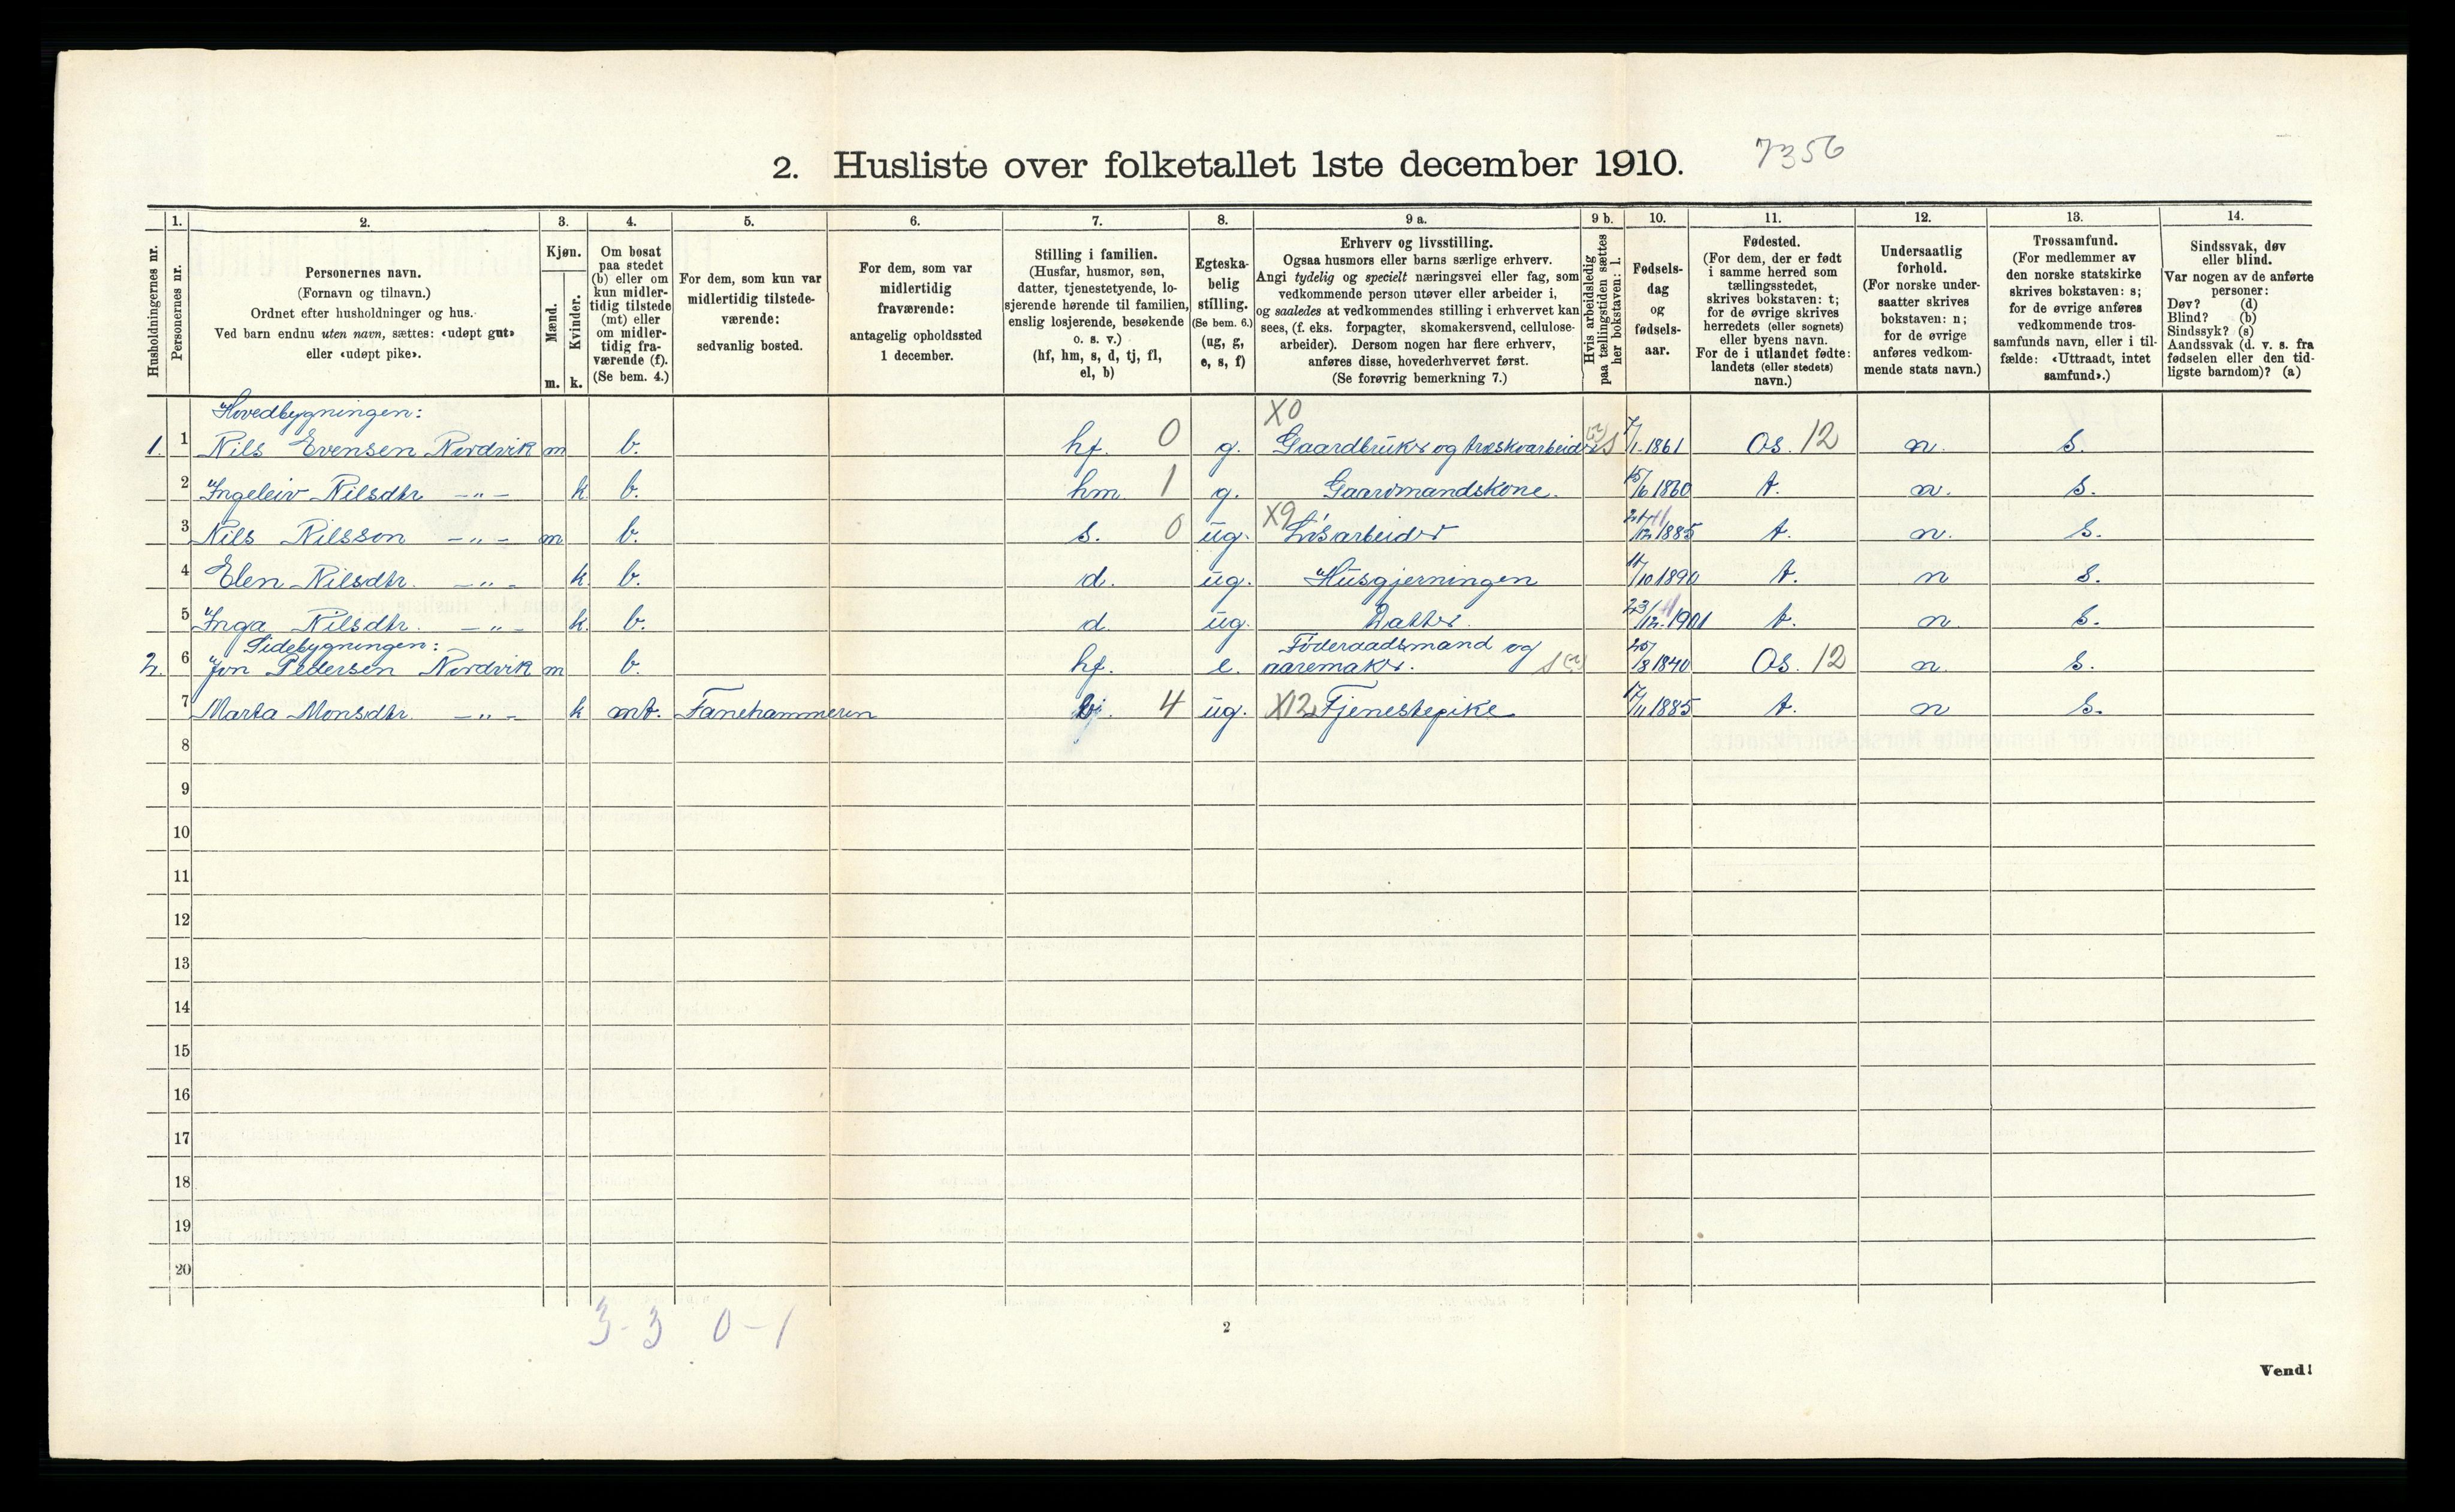 2. Husliste over folketallet 1ste december 1910. 7356
Husholdningernes nr.
1.
Personernes nr.
2.
Personernes navn.
(Fornavn og tilnavn.)
Ordnet efter husholdninger og hus.
Ved barn endnu uten navn, sættes: «udøpt gut»
eller «udøpt pike».
3.
Kjøn.
Mænd.
Kvinder.
m. k.
4.
Om bosat
paa stedet
(b) eller om
kun midler-
tidig tilstede
(mt) eller
om midler-
tidig fra-
værende (f).
(Se bem. 4.)
5.
For dem, som kun var
midlertidig tilstede-
værende:
sedvanlig bosted.
6.
For dem, som var
midlertidig
fraværende:
antagelig opholdssted
1 december.
7.
Stilling i familien.
(Husfar, husmor, søn,
datter, tjenestetyende, lo-
sjerende hørende til familien,
enslig losjerende, besøkende
o. s. v.)
(hf, hm, s, d, tj, fl,
el, b)
8.
Egteska-
belig
stilling.
(Se bem. 6.)
(ug, g,
e, s, f)
9 a.
Erhverv og livsstilling.
Ogsaa husmors eller barns særlige erhverv.
Angi tydelig og specielt næringsvei eller fag, som
vedkommende person utøver eller arbeider i,
og saaledes at vedkommendes stilling i erhvervet kan
sees, (f. eks. forpagter, skomakersvend, cellulose-
arbeider). Dersom nogen har flere erhverv,
anføres disse, hovederhvervet først.
(Se forøvrig bemerkning 7.)
9 b.
Hvis arbeidsledig
paa tællingstiden sættes
her bokstaven: l.
10.
Fødsels-
dag
og
fødsels-
aar.
11.
Fødested.
(For dem, der er født
i samme herred som
tællingsstedet,
skrives bokstaven: t;
for de øvrige skrives
herredets (eller sognets)
eller byens navn.
For de i utlandet fødte:
landets (eller stedets)
navn.)
12.
Undersaatlig
forhold.
(For norske under-
saatter skrives
bokstaven: n;
for de øvrige
anføres vedkom-
mende stats navn.)
13.
Trossamfund.
(For medlemmer av
den norske statskirke
skrives bokstaven: s;
for de øvrige anføres
vedkommende tros-
samfunds navn, eller i til-
fælde: «Uttraadt, intet
samfund».)
14.
Sindssvak, døv
eller blind.
Var nogen av de anførte
personer:
Døv? (d)
Blind? (b)
Sindssyk? (s)
Aandssvak (d. v. s. fra
fødselen eller den tid-
ligste barndom)? (a)
Hovedbygningen: X0
1. 1 Nils Evensen Nordvik m b. hf. 0 g. Gaardbruker og træskoarbeider 7/1 1861 Os. 12 n. S.
2 Ingeleiv Nilsdtr. —"— k b. hm 1 g. Gaardmandskone. 15/6 1860 t. n. S.
3 Nils Nilsson —"— m b. s. 0 ug. X9 Løsarbeider 12 1885 t. n. S.
4 Elen Nilsdtr. —"— k. b. d. ug. Husgjerningen 10 1890 t. n S.
5 Inga Nilsdtr. —"— k. b. d. ug. Datter. 23/12 1901 t. n. S.
Sidebygningen:
2. 6 Jon Pedersen Nordvik m b. hf. e. Føderaadsmand og
aaremaker. 25/8 1840 Os. 12 n. S.
7 Marta Monsdtr. —"— k mt. Fanehammeren 4 ug. X12 Tjenestepike 17/11 1885 t. n S.
8
9
10
11
12
13
14
15
16
17
18
19
20
3-3 0-1
2
Vend!